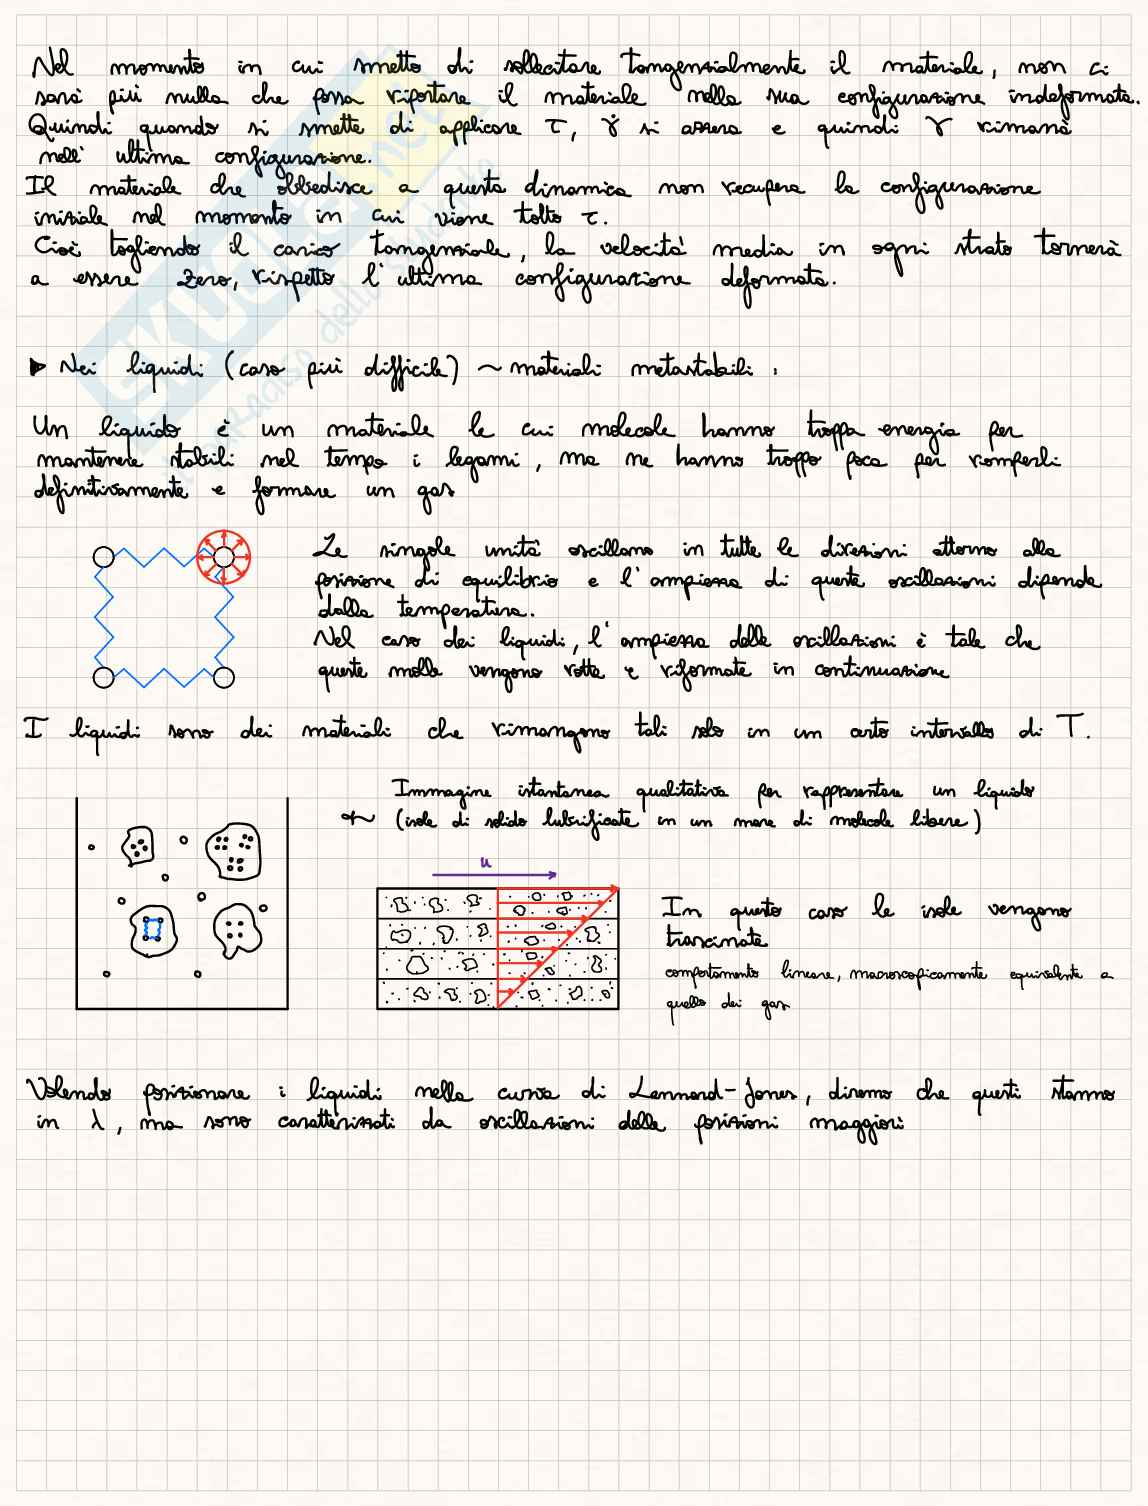 Nel momento in cui smetto di sollecitare tangenzialmente il materiale, non ci
sarà più nulla che possa riportare il materiale nella sua configurazione indeformata.
Quindi quando si smette di applicare τ, γ̇ si azzera e quindi γ rimarrà
nell' ultima configurazione.
Il materiale che obbedisce a questa dinamica non recupera la configurazione
iniziale nel momento in cui viene tolto τ.
Cioè togliendo il carico tangenziale, la velocità media in ogni strato tornerà
a essere zero, rispetto l' ultima configurazione deformata.
▶ Nei liquidi (caso più difficile) ~ materiali metastabili :
Un liquido è un materiale le cui molecole hanno troppa energia per
mantenere stabili nel tempo i legami, ma ne hanno troppo poca per romperli
definitivamente e formare un gas
Le singole unità oscillano in tutte le direzioni attorno alla
posizione di equilibrio e l'ampiezza di queste oscillazioni dipende
dalla temperatura.
Nel caso dei liquidi, l'ampiezza delle oscillazioni è tale che
queste molle vengono rotte e riformate in continuazione
I liquidi sono dei materiali che rimangono tali solo in un certo intervallo di T.
Immagine istantanea qualitativa per rappresentare un liquido
(isole di solido lubrificate in un mare di molecole libere)
u
In questo caso le isole vengono
trascinate
comportamento lineare, macroscopicamente equivalente a
quello dei gas
Volendo posizionare i liquidi nella curva di Lennard-Jones, diremo che questi stanno
in λ, ma sono caratterizzati da oscillazioni delle posizioni maggiori